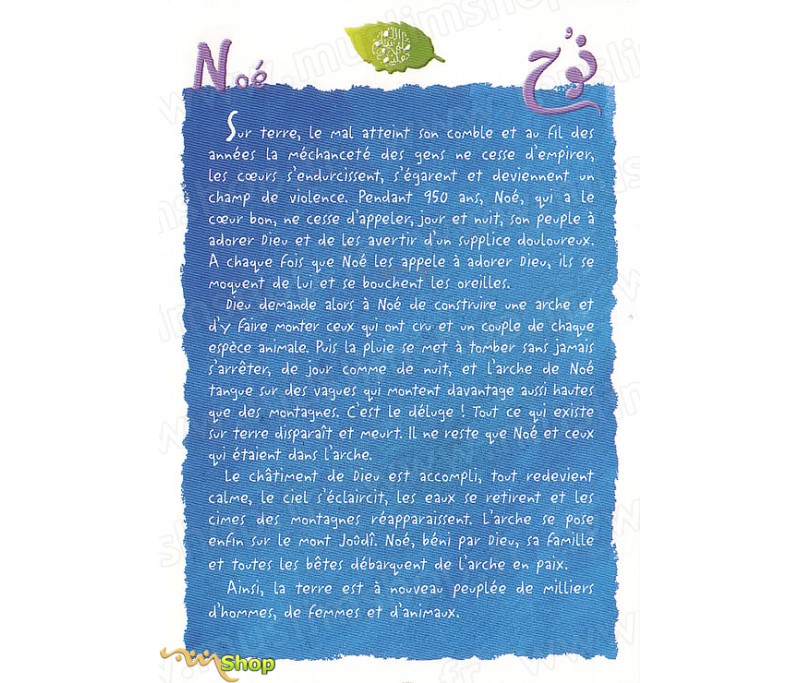 Noé
نُوح
Sur terre, le mal atteint son comble et au fil des
années la méchanceté des gens ne cesse d'empirer,
les cœurs s'endurcissent, s'égarent et deviennent un
champ de violence. Pendant 950 ans, Noé, qui a le
cœur bon, ne cesse d'appeler, jour et nuit, son peuple à
adorer Dieu et de les avertir d'un supplice douloureux.
A chaque fois que Noé les appele à adorer Dieu, ils se
moquent de lui et se bouchent les oreilles.
Dieu demande alors à Noé de construire une arche et
d'y faire monter ceux qui ont cru et un couple de chaque
espèce animale. Puis la pluie se met à tomber sans jamais
s'arrêter, de jour comme de nuit, et l'arche de Noé
tangue sur des vagues qui montent davantage aussi hautes
que des montagnes. C'est le déluge ! Tout ce qui existe
sur terre disparaît et meurt. Il ne reste que Noé et ceux
qui étaient dans l'arche.
Le châtiment de Dieu est accompli, tout redevient
calme, le ciel s'éclaircit, les eaux se retirent et les
cimes des montagnes réapparaissent. L'arche se pose
enfin sur le mont Joûdî. Noé, béni par Dieu, sa famille
et toutes les bêtes débarquent de l'arche en paix.
Ainsi, la terre est à nouveau peuplée de milliers
d'hommes, de femmes et d'animaux.
Shop